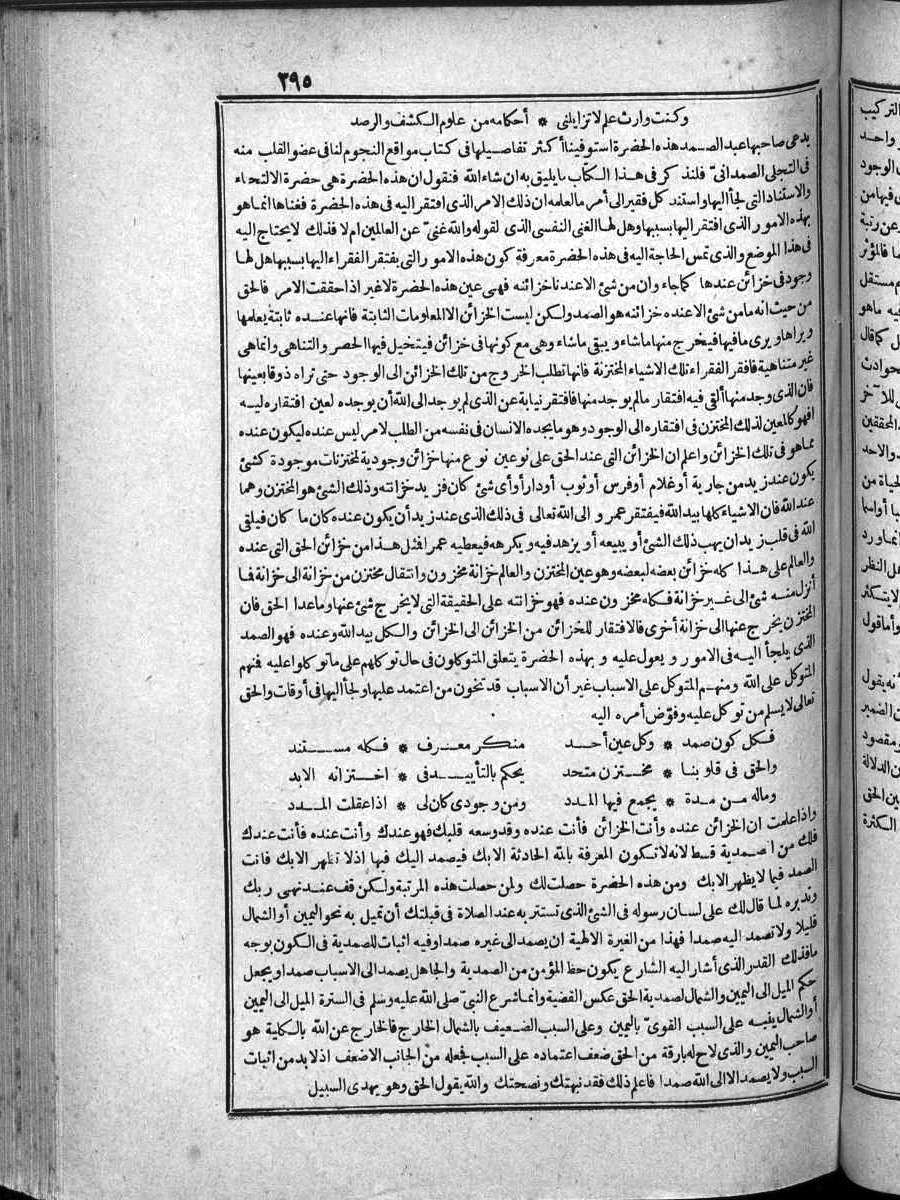 ٣٩٥
وكنت وارث علم لا تزايلني * أحكامه من علوم الكشف والرصد
يدعى صاحبها عبد الصمد هذه الحضرة استوفينا أكثر تفاصيلها في كتاب مواقع النجوم لنا في عضو القلب منه
في التجلي الصمداني فلنذكر في هذا الكتاب ما يليق به ان شاء الله فنقول ان هذه الحضرة هي حضرة الالتجاء
والاستناد التي لجأ اليها واستند كل فقير الى أمر ما لعلمه ان ذلك الامر الذي افتقر اليه في هذه الحضرة فغناها انما هو
بهذه الامور الذي افتقر اليها بسببها وهل لها الغنى النفسي الذي لقوله والله غنيّ عن العالمين ام لا فذلك لا يحتاج اليه
في هذا الموضع والذي تمس الحاجة اليه في هذه الحضرة معرفة كون هذه الامور التي يفتقر الفقراء اليها بسببها هل لها
وجود في خزائن عندها كما جاء وان من شئ الا عندنا خزائنه فهي عين هذه الحضرة لا غير اذا حققت الامر فالحق
من حيث انه ما من شئ الا عنده خزائنه هو الصمد ولكن ليست الخزائن الا المعلومات الثابتة فانها عنده ثابتة يعلمها
ويراها ويرى ما فيها فيخرج منها ما شاء ويبقى ما شاء وهي مع كونها في خزائن فيتخيل فيها الحصر والتناهي وانما هي
غير متناهية فافقر الفقراء تلك الاشياء المختزنة فانها تطلب الخروج من تلك الخزائن الى الوجود حتى تراه ذوقا بعينها
فان الذي وجد منها ألقى فيه افتقار ما لم يوجد منها فافتقر نيابة عن الذي لم يوجد الى الله أن يوجده لعين افتقاره ليه
افهو كالمعين لذلك المختزن في افتقاره الى الوجود وهو ما يجده الانسان في نفسه من الطلب لامر ليس عنده ليكون عنده
مما هو في تلك الخزائن واعلم ان الخزائن التي عند الحق على نوعين نوع منها خزائن وجودية لمختزنات موجودة كشئ
يكون عند زيد من جارية أو غلام أو فرس أو ثوب أو دار أو أي شئ كان فزيد خزانته وذلك الشئ هو المختزن وهما
عند الله فان الاشياء كلها بيد الله فيفتقر عمرو الى الله تعالى في ذلك الذي عند زيد أن يكون عنده كان ما كان فيلقى
الله في قلب زيد ان يهب ذلك الشئ أو يبيعه أو يزهد فيه ويكرهه فيعطيه عمرا فمثل هذا من خزائن الحق التي عنده
والعالم على هذا كله خزائن بعضه لبعضه وهو عين المختزن والعالم خزانة مخزون وانتقال مختزن من خزانة الى خزانة فما
أنزل منه شئ الى غير خزانة فكله مخزون عنده فهو خزانته على الحقيقة التي لا يخرج شئ عنها وما عدا الحق فان
المختزن يخرج عنها الى خزانة أخرى فالافتقار للخزائن من الخزائن الى الخزائن والكل بيد الله وعنده فهو الصمد
الذي يلجأ اليه في الامور ويعول عليه وبهذه الحضرة يتعلق المتوكلون في حال توكلهم على ما توكلوا عليه فمنهم
المتوكل على الله ومنهم المتوكل على الاسباب غير أن الاسباب قد تخون من اعتمد عليها ولجأ اليها في أوقات والحق
تعالى لا يسلم من توكل عليه وفوّض أمره اليه
فكل كون صمد * وكل عين أحد منكر معرف * فكله مستند
والحق في قلوبنا * مختزن متحد يحكم بالتأييد في * اختزانه الابد
وماله من مدة * يجمع فيها المدد ومن وجودي كان لي * اذا عقلت المدد
واذا علمت ان الخزائن عنده وأنت الخزائن فأنت عنده وقد وسعه قلبك فهو عندك وأنت عنده فأنت عندك
فلك من الصمدية قسط لانه لا تكون المعرفة بالله الحادثة الا بك فيصمد اليك فيها اذ لا تظهر الا بك فانت
الصمد فيما لا يظهر الا بك ومن هذه الحضرة حصلت لك ولمن حصلت هذه المرتبة ولكن قف عند نهى ربك
وتدبره لما قال لك على لسان رسوله في الشئ الذي تستتر به عند الصلاة في قبلتك أن تميل به نحو اليمين أو الشمال
قليلا ولا تصمد اليه صمدا فهذا من الغيرة الالهية ان يصمد الى غيره صمدا وفيه اثبات للصمدية في الكون بوجه
ما فذلك القدر الذي أشار اليه الشارع يكون حظ المؤمن من الصمدية والجاهل يصمد الى الاسباب صمدا ويجعل
حكم الميل الى اليمين والشمال لصمدية الحق عكس القضية وانما شرع النبي صلى الله عليه وسلم في السترة الميل الى اليمين
أو الشمال ينبه على السبب القوي باليمين وعلى السبب الضعيف بالشمال الخارج فالخارج عن الله بالكلية هو
صاحب اليمين والذي لاح له بارقة من الحق ضعف اعتماده على السبب فجعله من الجانب الاضعف اذ لا بد من اثبات
السبب ولا يصمد الا الى الله صمدا فاعلم ذلك فقد نبهتك ونصحتك والله يقول الحق وهو يهدى السبيل